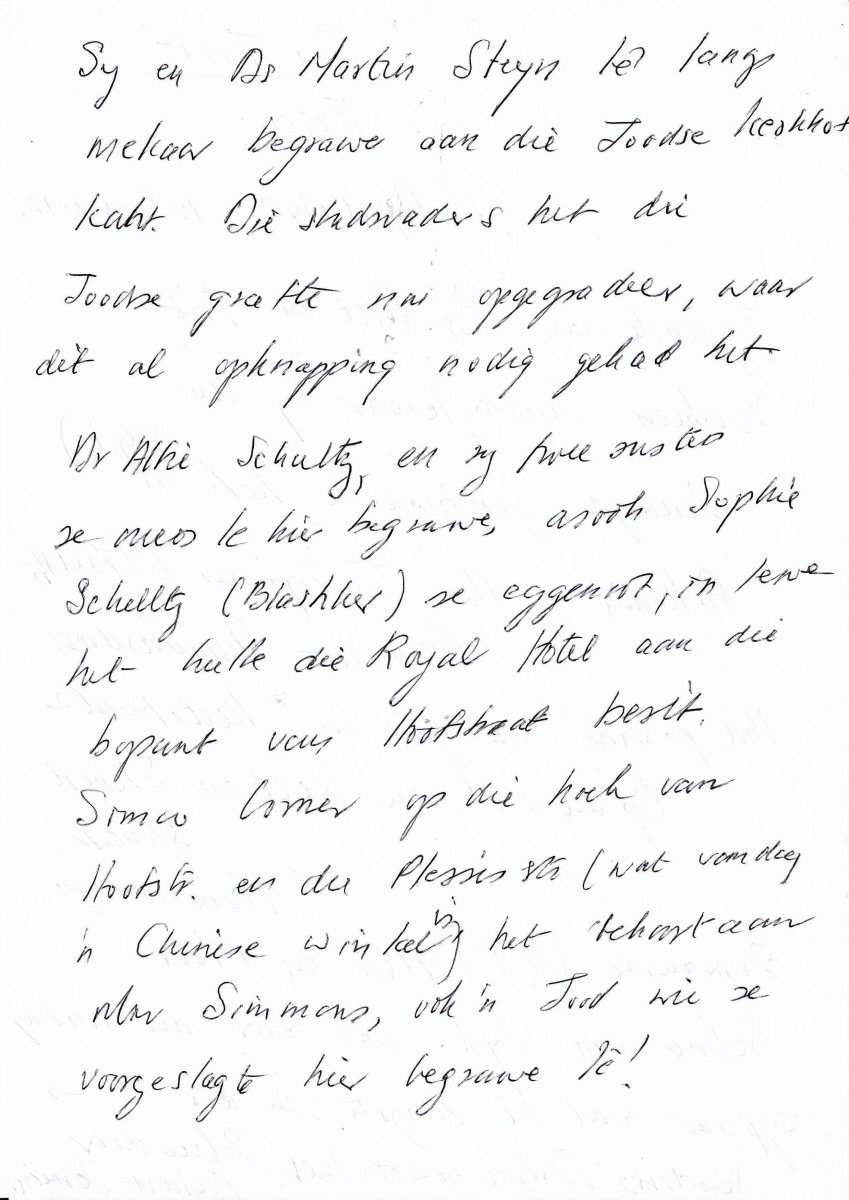 Sy en Dr Martin Steyn lê langs
mekaar begrawe aan die Joodse kerkhof
kant. Die stadsvaders het die
Joodse grafte nou opgegradeer, waar
dit al opknapping nodig gehad het.
Dr Alkie Schultz, en sy twee susters
se ouers lê hier begrawe, asook Sophie
Schultz (Blashker) se eggenoot, in lewe
het hulle die Royal Hotel aan die
bopunt van Hoofstraat besit.
Simco Corner op die hoek van
Hoofstr. en du Plessis str (wat vandag
'n Chinese winkel is) het behoort aan
Mnr Simmons, ook 'n Jood wie se
voorgeslagte hier begrawe lê!